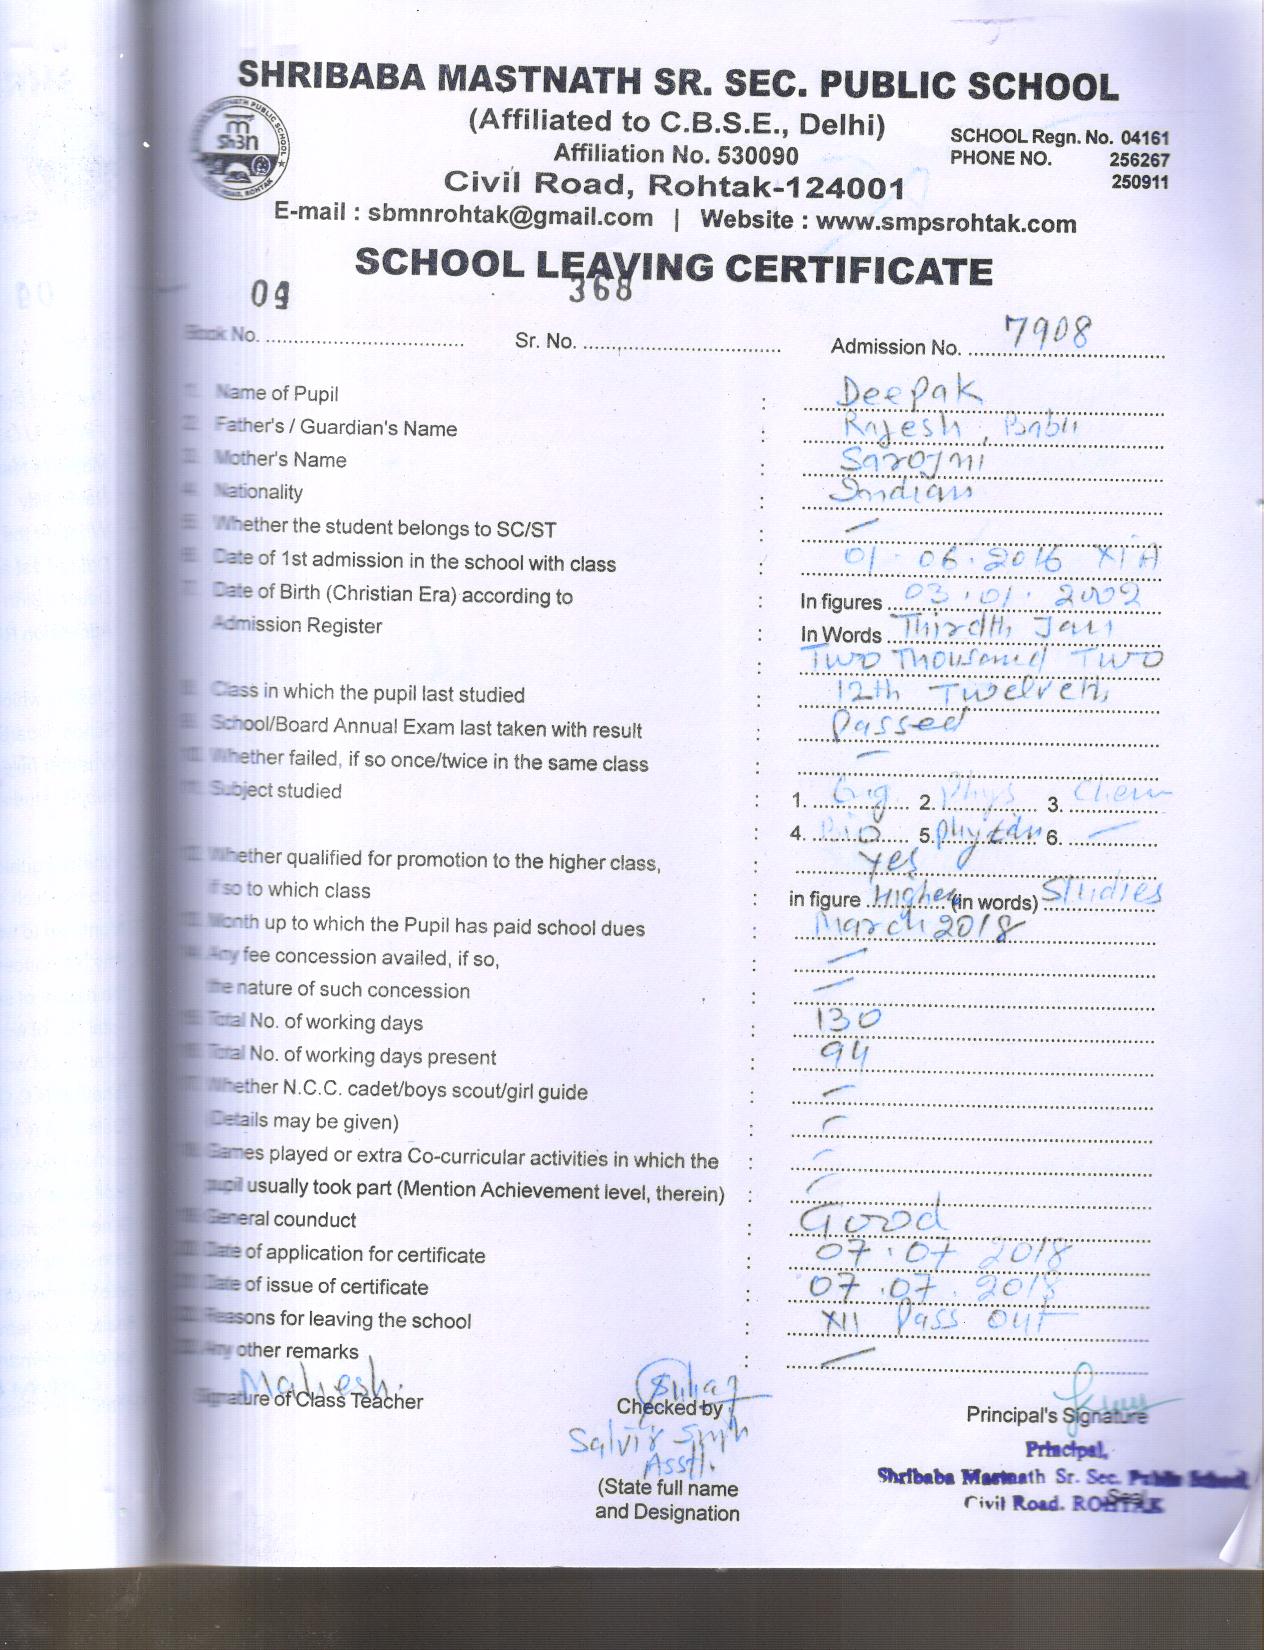 SHRIBABA MASTNATH SR. SEC. PUBLIC SCHOOL
(Affiliated to C.B.S.E., Delhi)
Affiliation No. 530090
SCHOOL Regn. No. 04161
PHONE NO. 256267
250911
Civil Road, Rohtak-124001
E-mail : sbmnrohtak@gmail.com | Website : www.smpsrohtak.com
SCHOOL LEAVING CERTIFICATE
Book No. 09 Sr. No. 368 Admission No. 7908
1. Name of Pupil : Deepak
2. Father's / Guardian's Name : Rajesh, Babu
3. Mother's Name : Sarojni
4. Nationality : Indian
5. Whether the student belongs to SC/ST : —
6. Date of 1st admission in the school with class : 01.06.2016 XI A
7. Date of Birth (Christian Era) according to : In figures 03.01.2002
Admission Register : In Words Thirdth Jan
: Two Thousand Two
8. Class in which the pupil last studied : 12th Twelveth
9. School/Board Annual Exam last taken with result : Passed
10. Whether failed, if so once/twice in the same class : —
11. Subject studied : 1. Eng. 2. Phys 3. Chem
: 4. Bio 5. Phy Edu 6. —
12. Whether qualified for promotion to the higher class, : Yes
if so to which class : in figure Higher (in words) Studies
13. Month up to which the Pupil has paid school dues : March 2018
14. Any fee concession availed, if so, : —
the nature of such concession : —
15. Total No. of working days : 130
16. Total No. of working days present : 94
17. Whether N.C.C. cadet/boys scout/girl guide : —
(Details may be given) : —
18. Games played or extra Co-curricular activities in which the : —
pupil usually took part (Mention Achievement level, therein) : —
19. General counduct : Good
20. Date of application for certificate : 07.07 2018
21. Date of issue of certificate : 07.07.2018
22. Reasons for leaving the school : XII Pass out
23. Any other remarks : —
Mahesh
Signature of Class Teacher
Checked by
Asstt.
(State full name
and Designation
Principal's Signature
Principal,
Shribaba Mastnath Sr. Sec. Public School
Seal
Civil Road. ROHTAK